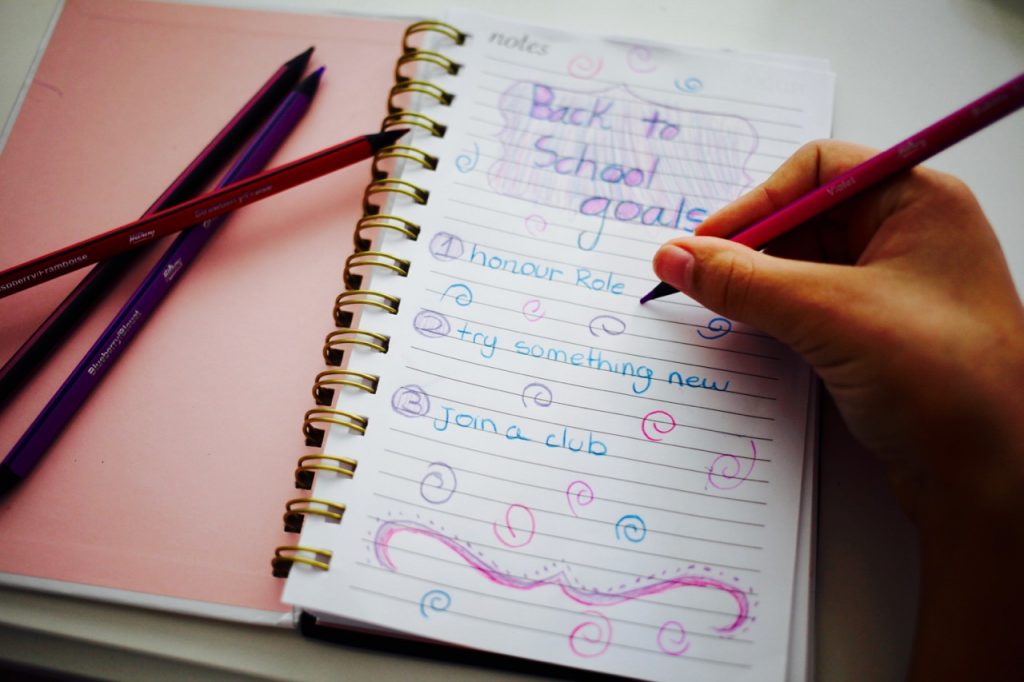 notes
Back to
School
goals
1 honour Role
2 try something new
3 join a club
Violet
Blueberry/Bleuet